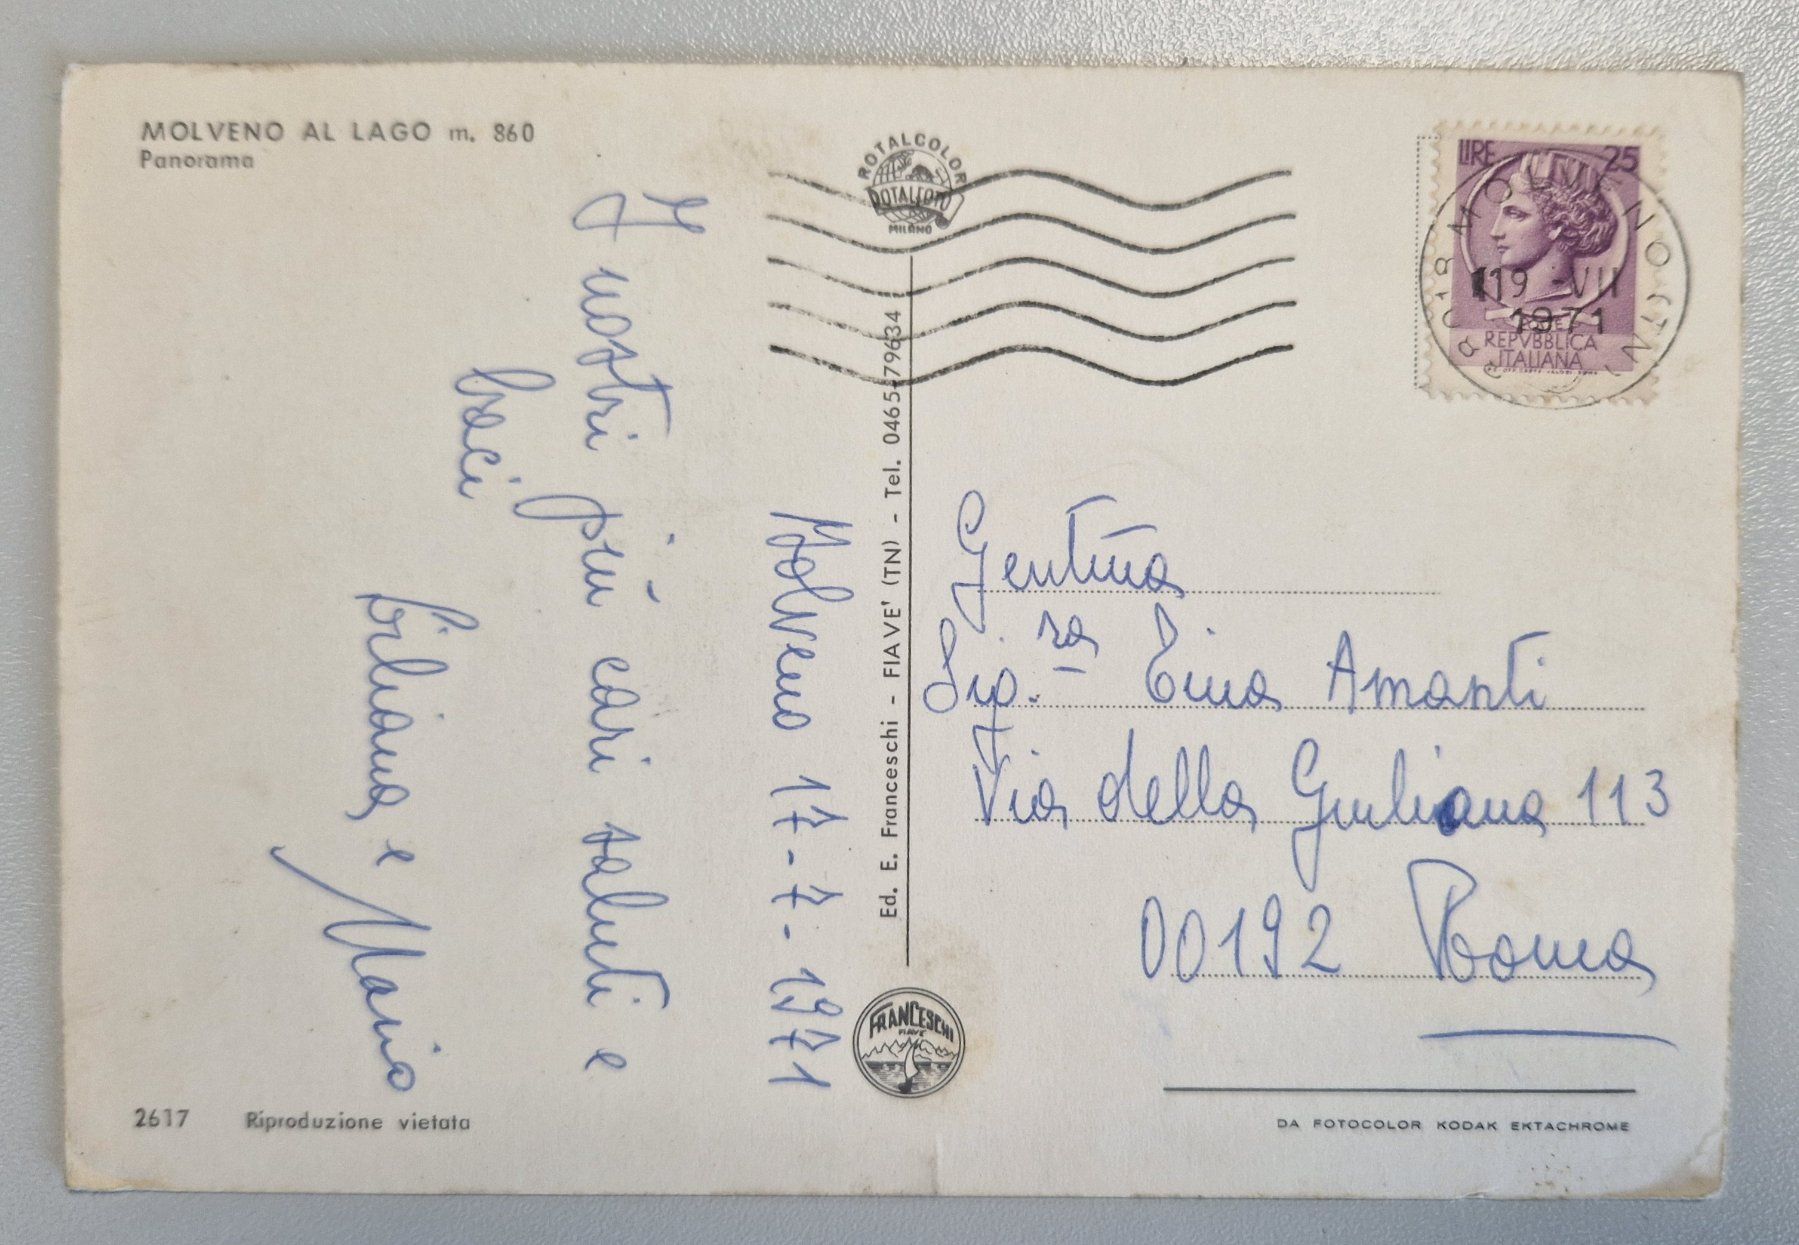 MOLVENO AL LAGO m. 860
Panorama
I nostri più cari saluti e
baci
Liliana e
Mario
Molveno 17-7-1971
2617 Riproduzione vietata
ROTALCOLOR
ROTALFOTO
MILANO
Ed. E. Franceschi - FIAVE' (TN) - Tel. 0465-79634
FRANCESCHI
FIAVE
LIRE 25
MOLVENO (TN)
19 -VII
1971
REPVBBLICA
ITALIANA
Gent.ma
Sig.ra Tina Amanti
Via della Giuliana 113
00192 Roma
DA FOTOCOLOR KODAK EKTACHROME